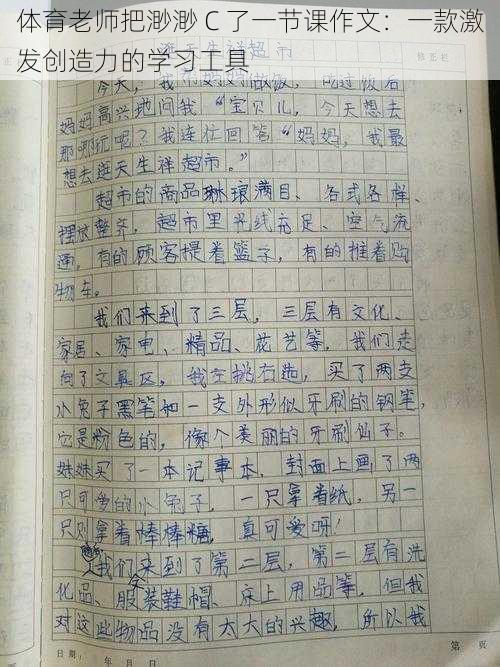 体育老师把渺渺C了一节课作文：一款激
发创造力的学习工具
逛天生祥超市
修正栏
今天，我帮妈妈做饭，吃过饭后
妈妈高兴地问我“宝贝儿，今天想去
那哪玩呢？我连忙回答“妈妈，我最
想去逛天生祥超市。”
超市的商品琳琅满目、各式各样、
摆放整齐，超市里光线充足、空气流
通，有的顾客提着篮子，有的推着购
物车。
我们来到了三层，三层有文化、
家居、家电、精品、花艺等，我们走
向了文具区，我左挑右选，买了两支
小兔子黑笔和一支外形似牙刷的钢笔，
它是粉色的，像个美丽的牙刷仙子。
妹妹买了一本记事本，封面上画了两
只可爱的小兔子，一只拿着纸，另一
只则拿着棒棒糖，真可爱呀！
我们来到了第二层，第二层有洗
化品、服装鞋帽、床上用品等，但我
对这些物品没有太大的兴趣，所以我
日期：
年 月 日
第 页